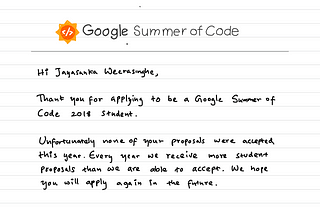 Google Summer of Code
Hi Jayasanka Weerasinghe,
Thank you for applying to be a Google Summer of
Code 2018 student.
Unfortunately none of your proposals were accepted
this year. Every year we receive more student
proposals than we are able to accept. We hope
you will apply again in the future.